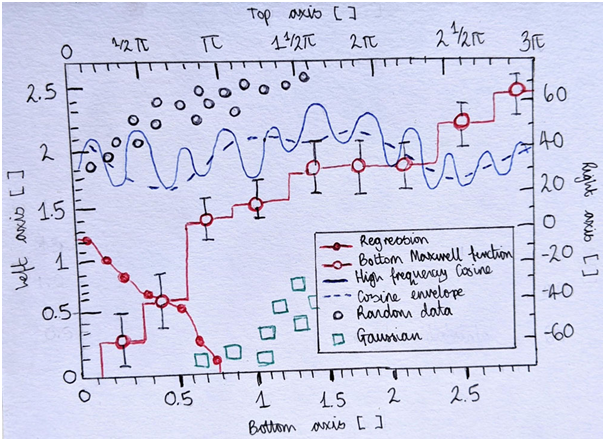 Top axis [ ]
0 1/2π π 1 1/2π 2π 2 1/2π 3π
2.5
2
1.5
1
0.5
0
Left axis [ ]
60
40
20
0
-20
-40
-60
Right axis [ ]
Regression
Bottom Maxwell function
High frequency Cosine
Cosine envelope
Random data
Gaussian
0 0.5 1 1.5 2 2.5
Bottom axis [ ]